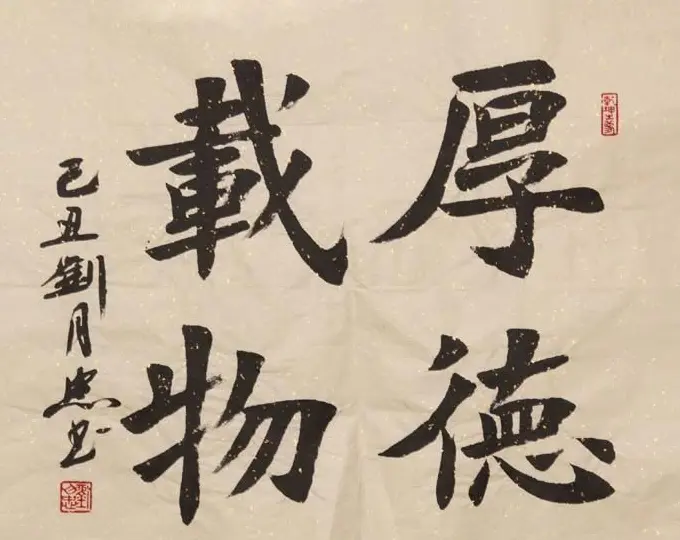 厚德
載物
己丑劉月忠书